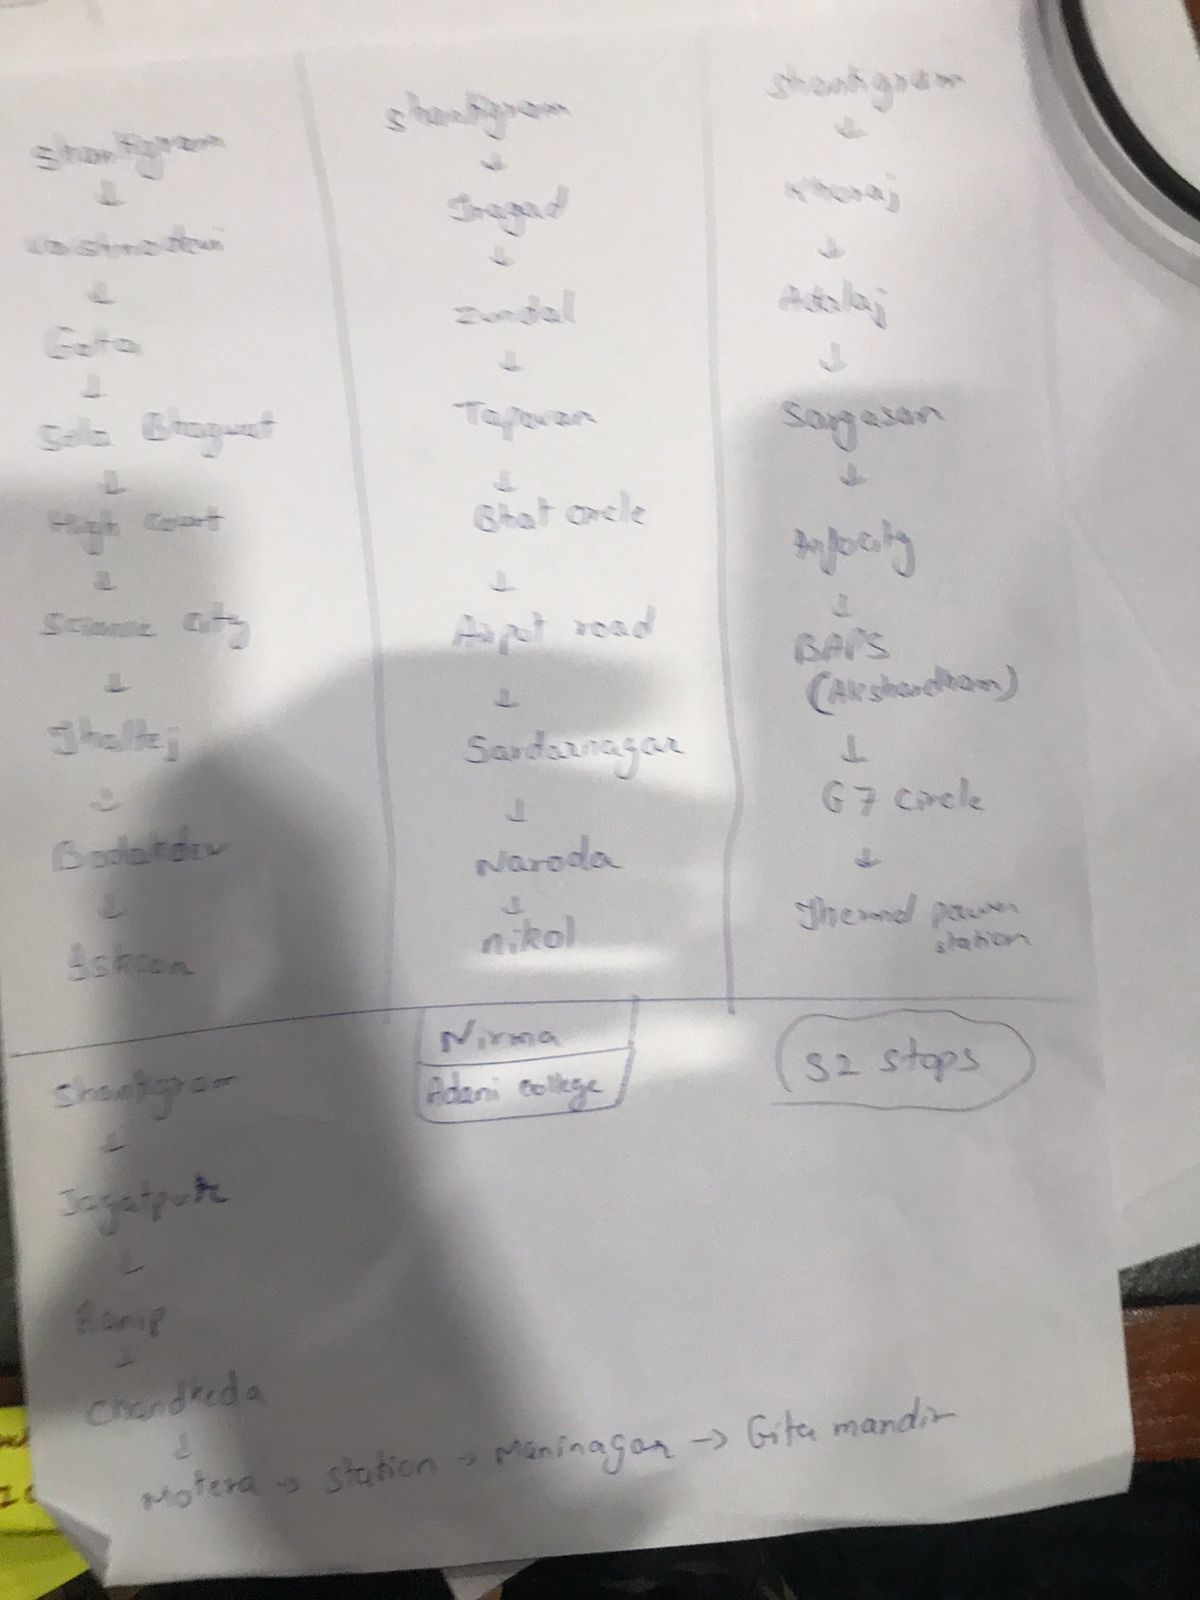 Shantigram
↓
Vaishnodevi
↓
Gota
↓
Sola Bhagwat
↓
High court
↓
Science city
↓
Thaltej
↓
Bodakdev
↓
Iskcon
Shantigram
↓
Tragad
↓
Zundal
↓
Tapovan
↓
Bhat circle
↓
Airpot road
↓
Sardarnagar
↓
Naroda
↓
nikol
Shantigram
↓
Khoraj
↓
Adalaj
↓
Sargasan
↓
Infocity
↓
BAPS
(Akshardham)
↓
G7 circle
↓
Thermal power
station
Nirma
Adani college
32 stops
Shantigram
↓
Jagatpur
↓
Ranip
↓
Chandkeda
↓
Motera → station → Maninagar → Gita mandir